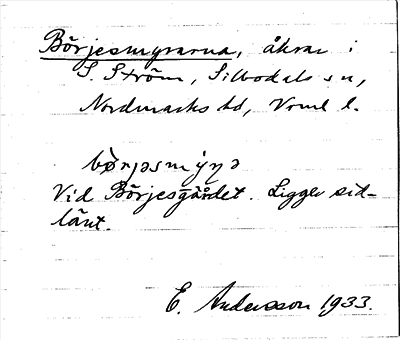 Börjesmyrarna, åkrar i
S. Ström, Silbodals sn,
Nordmarks hd, Vrml l.
Vid Börjesgårdet. Ligger sid-
länt.
E. Andersson 1933.